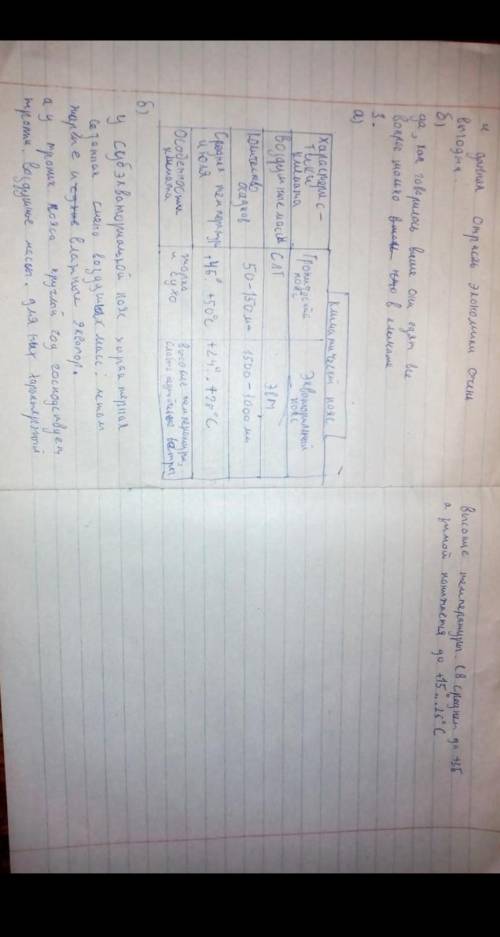 и дивия Отрясь экономики очень
выгодна
б)
да, как говорилось выше они едят все
вопрос только в климате
3.
а)
Характерис-
тики
климата
Климатический пояс
Тропический
пояс
Экваториальный
пояс
Воздушные массы
СЛТ
ЭВМ
Количество
осадков
50-150 мм
1500-3000 мм
Средняя температура
июля
+45° +50°C
+24°..+28°C
Особенности
климата
жарко
и сухо
высокие температуры,
слабые ветры
б)
У субэкваториальной пояс характерная
сезонная смена воздушных масс: летом
жаркие и влажные экватор.
а у тропик пояса круглый год господствуем
тропич. воздушные массы. для них характерный
высокие температуры (в среднем до +35
а зимой понижается до +15...25°C